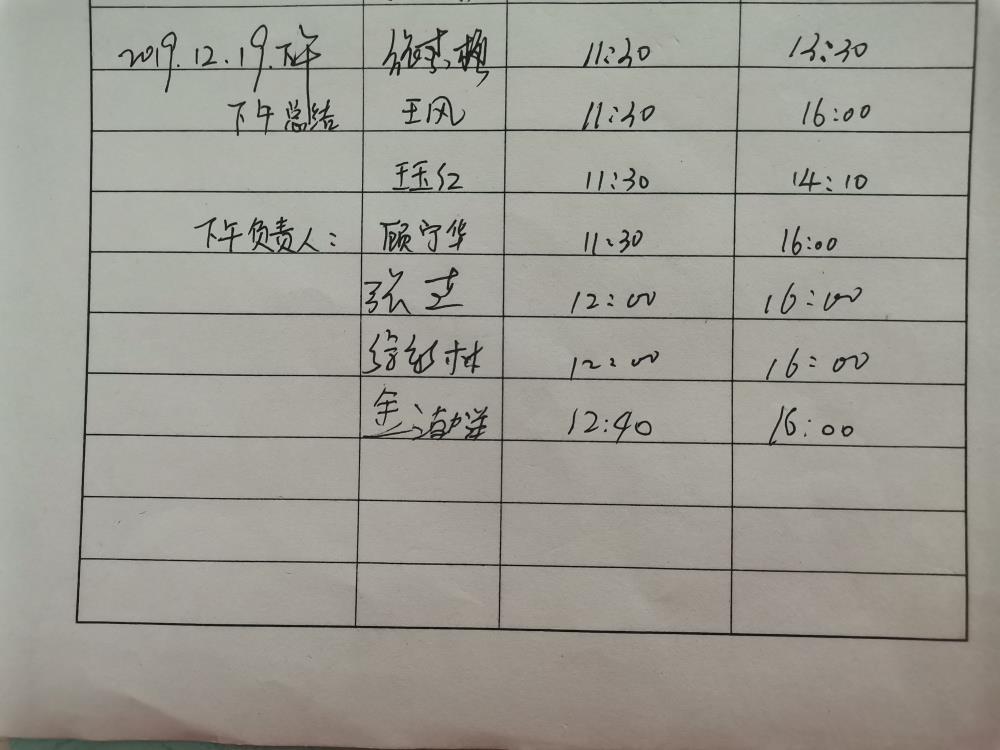 2019.12.19.下午 11:30 13:30
下午总结 王风 11:30 16:00
王玉红 11:30 14:10
下午负责人: 顾守华 11:30 16:00
张 12:00 16:00
林 12:00 16:00
金 12:40 16:00